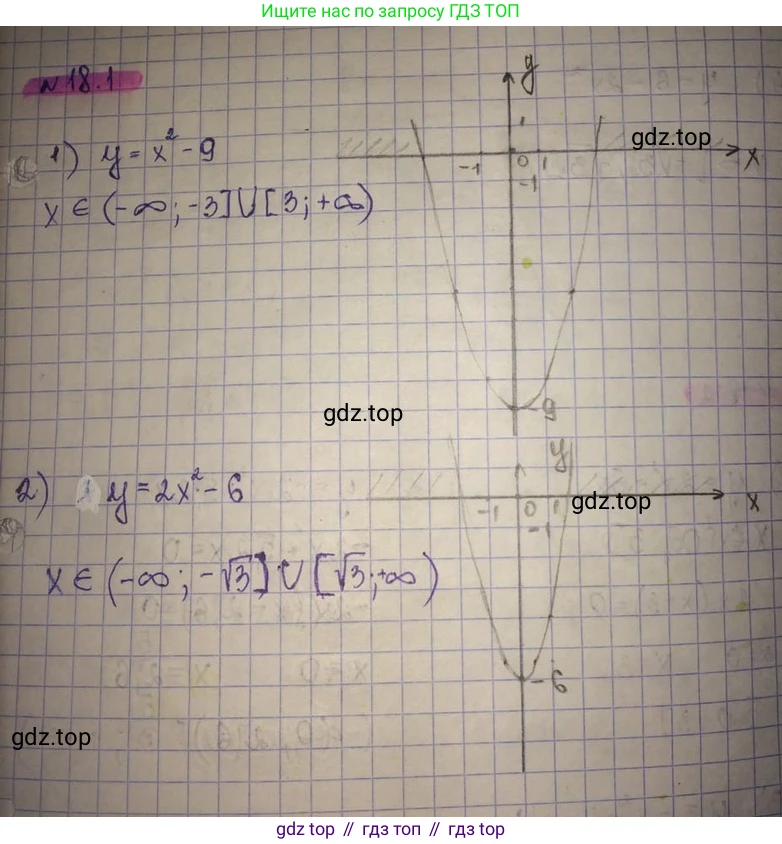 Ищите нас по запросу ГДЗ ТОП
№ 18.1
1) y = x² - 9
x ∈ (-∞; -3] ∪ [3; +∞)
y
1
-1 0 1 x
-1
-9
gdz.top
gdz.top
gdz.top
2) y = 2x² - 6
x ∈ (-∞; -√3] ∪ [√3; +∞)
y
-1 0 1 x
-1
-6
gdz.top
gdz.top // гдз топ // gdz top